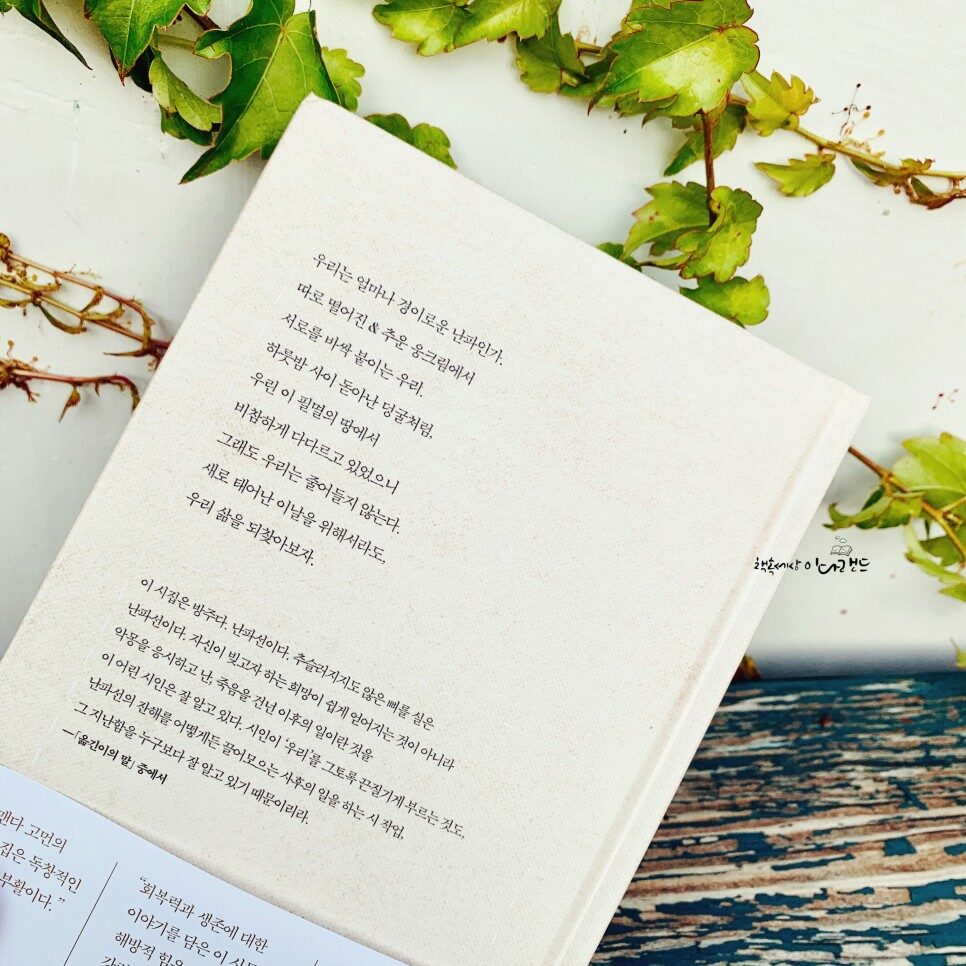 우리는 얼마나 경이로운 난파인가.
따로 떨어진 & 추운 웅크림에서
서로를 바싹 붙이는 우리.
하룻밤 사이 돋아난 덩굴처럼,
우린 이 필멸의 땅에서
비참하게 다다르고 있었으니
그래도 우리는 줄어들지 않는다.
새로 태어난 이날을 위해서라도,
우리 삶을 되찾아보자.
이 시집은 방주다. 난파선이다. 추슬러지지도 않은 뼈를 실은
난파선이다. 자신이 빚고자 하는 희망이 쉽게 얻어지는 것이 아니라
악몽을 응시하고 난, 죽음을 건넌 이후의 일이란 것을
이 어린 시인은 잘 알고 있다. 시인이 ‘우리’를 그토록 끈질기게 부르는 것도,
난파선의 잔해를 어떻게든 끌어모으는 사후의 일을 하는 시 작업,
그 지난함을 누구보다 잘 알고 있기 때문이리라.
—「옮긴이의 말」 중에서
책속세상 이나랜드
맨다 고먼의
집은 독창적인
부활이다.”
“회복력과 생존에 대한
이야기를 담은 이 시
해방적 힘은